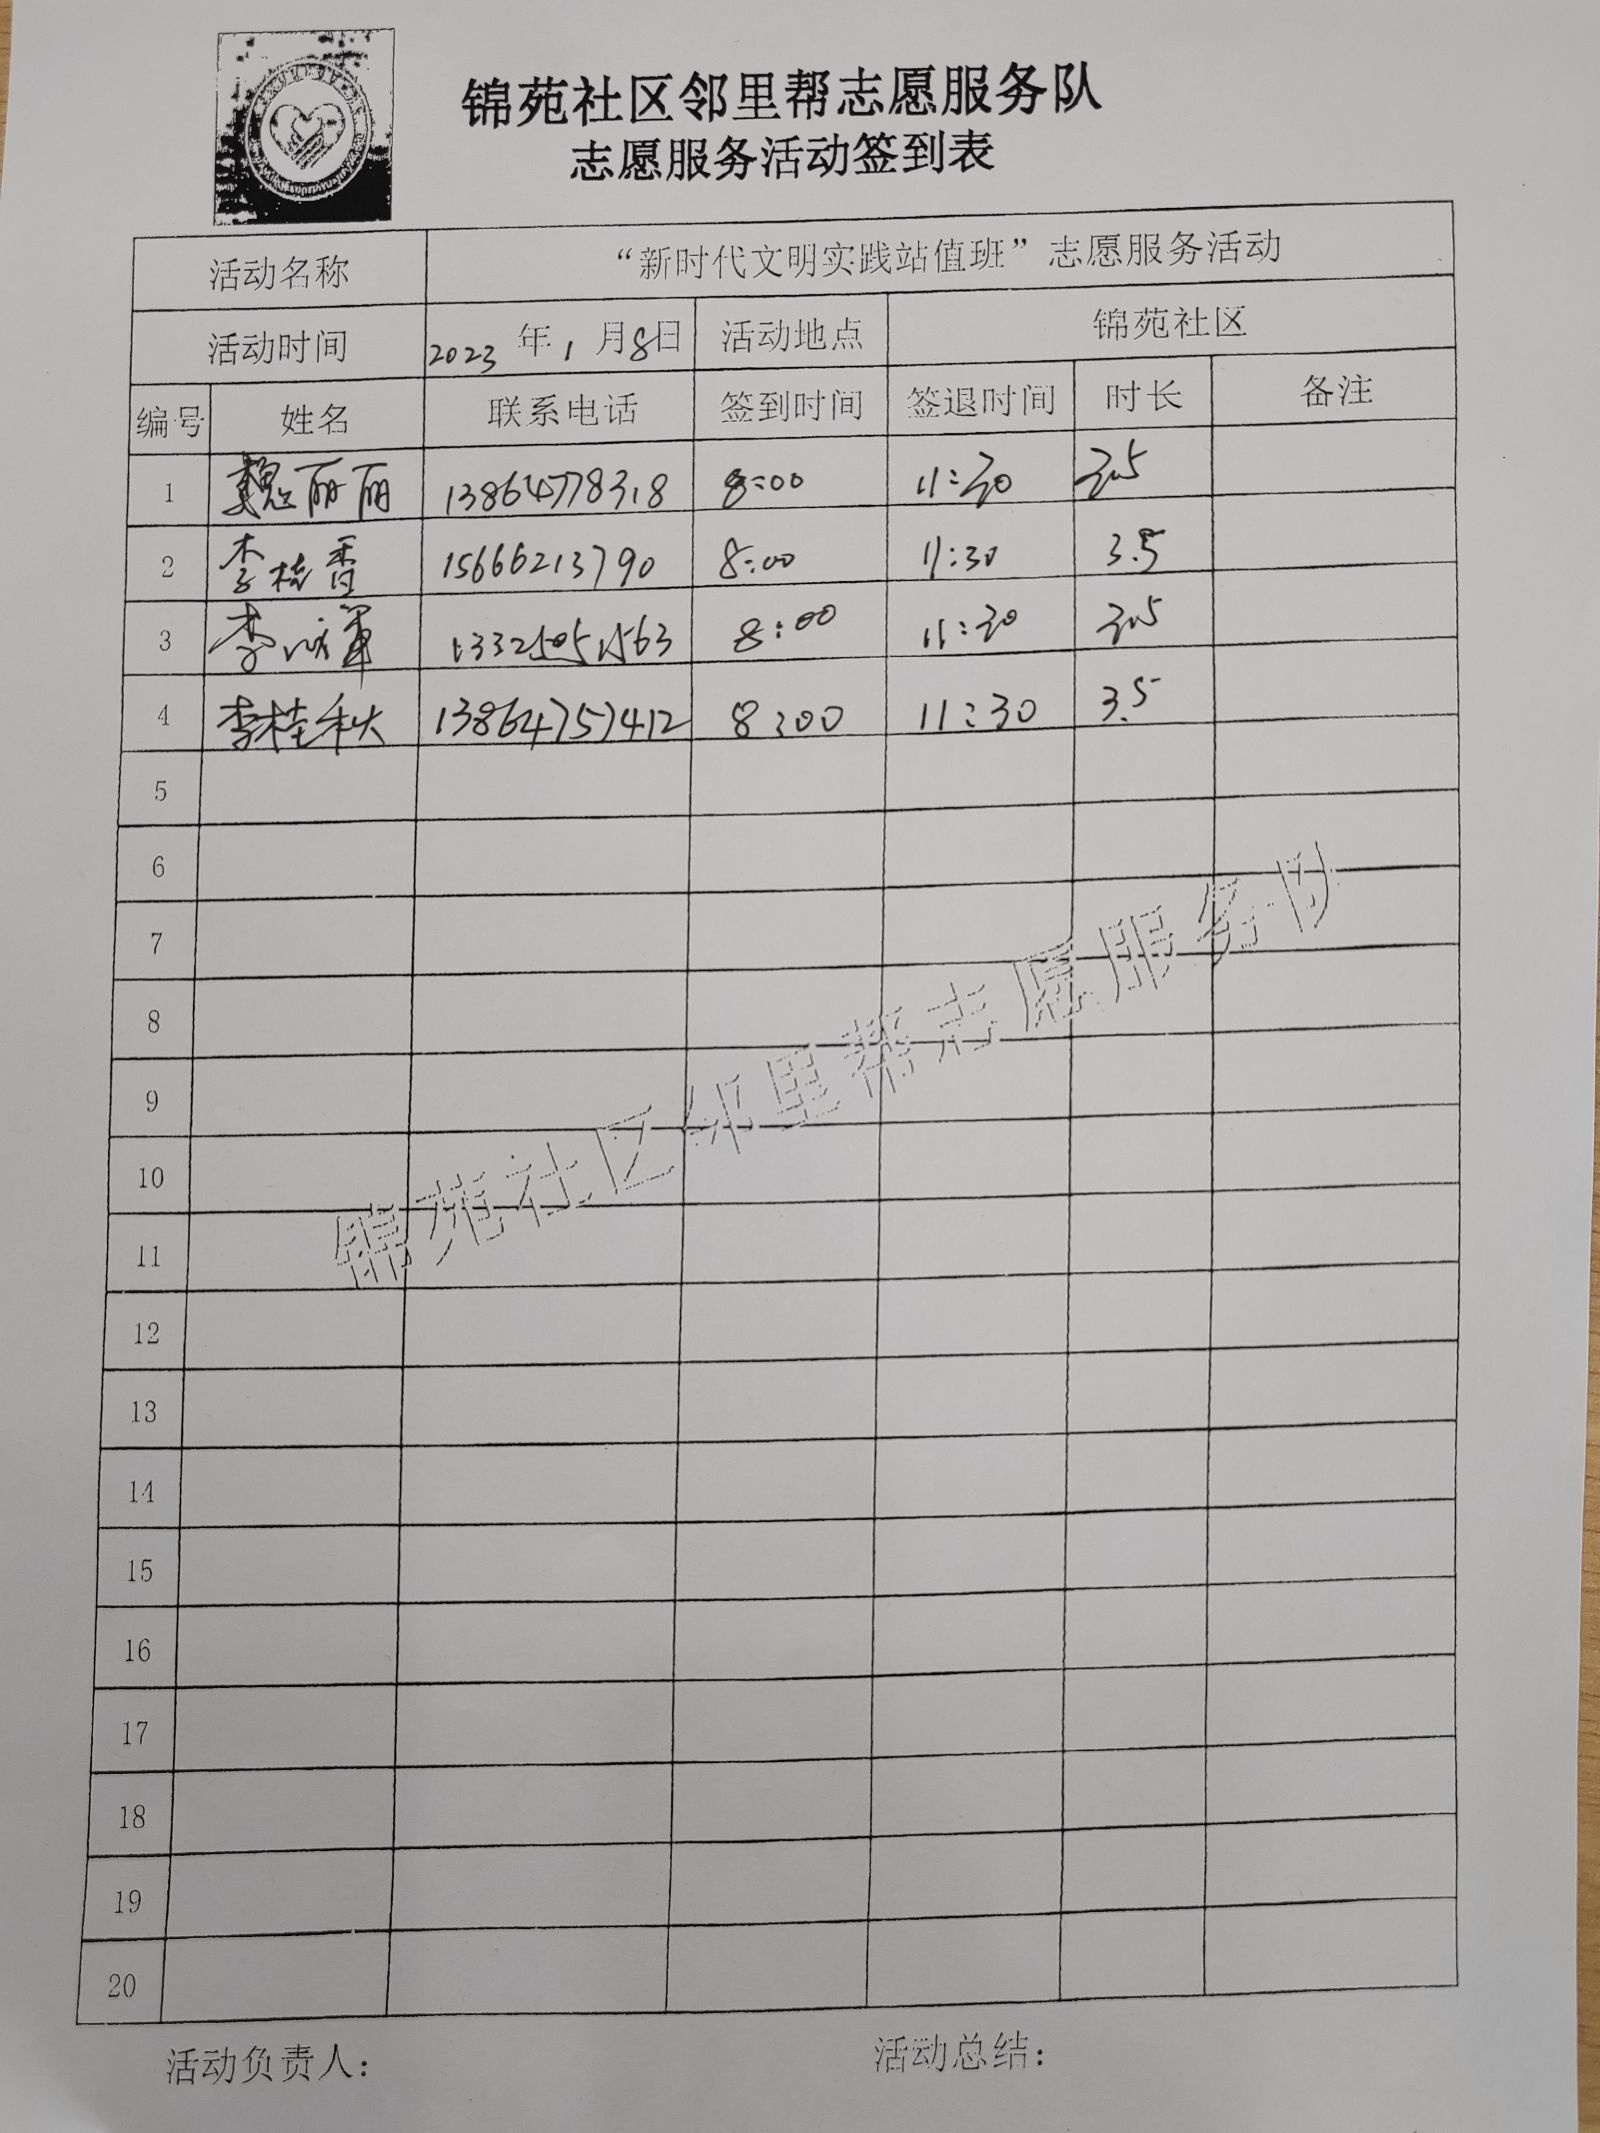 锦苑社区邻里帮志愿服务队
志愿服务活动签到表
活动名称 “新时代文明实践站值班”志愿服务活动
活动时间 2023 年 1 月 8 日 活动地点 锦苑社区
编号 姓名 联系电话 签到时间 签退时间 时长 备注
1 魏丽丽 13864778318 8:00 11:30 3.5
2 李桂香 15666213790 8:00 11:30 3.5
3 李 8:00 11:30 3.5
4 李桂秋 13864757412 8:00 11:30 3.5
5
6
7
8
9
10
11
12
13
14
15
16
17
18
19
20
锦苑社区邻里帮志愿服务队
活动负责人: 活动总结: